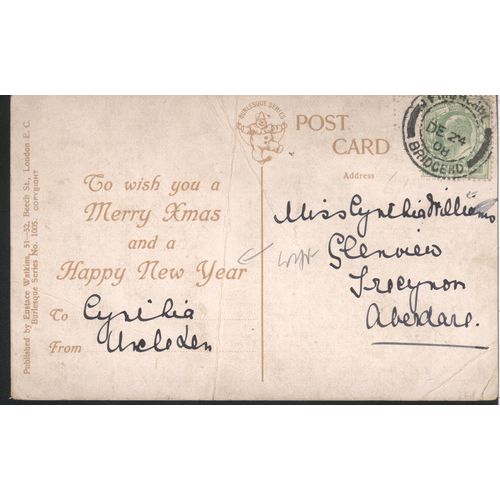 Published by Eustace Watkins, 51-52, Beech St., London E.C.
Burlesque Series No. 1005. COPYRIGHT
BURLESQUE SERIES
POST CARD
Address
To wish you a
Merry Xmas
and a
Happy New Year
To Cynthia
From Uncle Len
BRIDGEND
DE 24
08
Miss Cynthia Williams
Glenview
Trecynon
Aberdare.